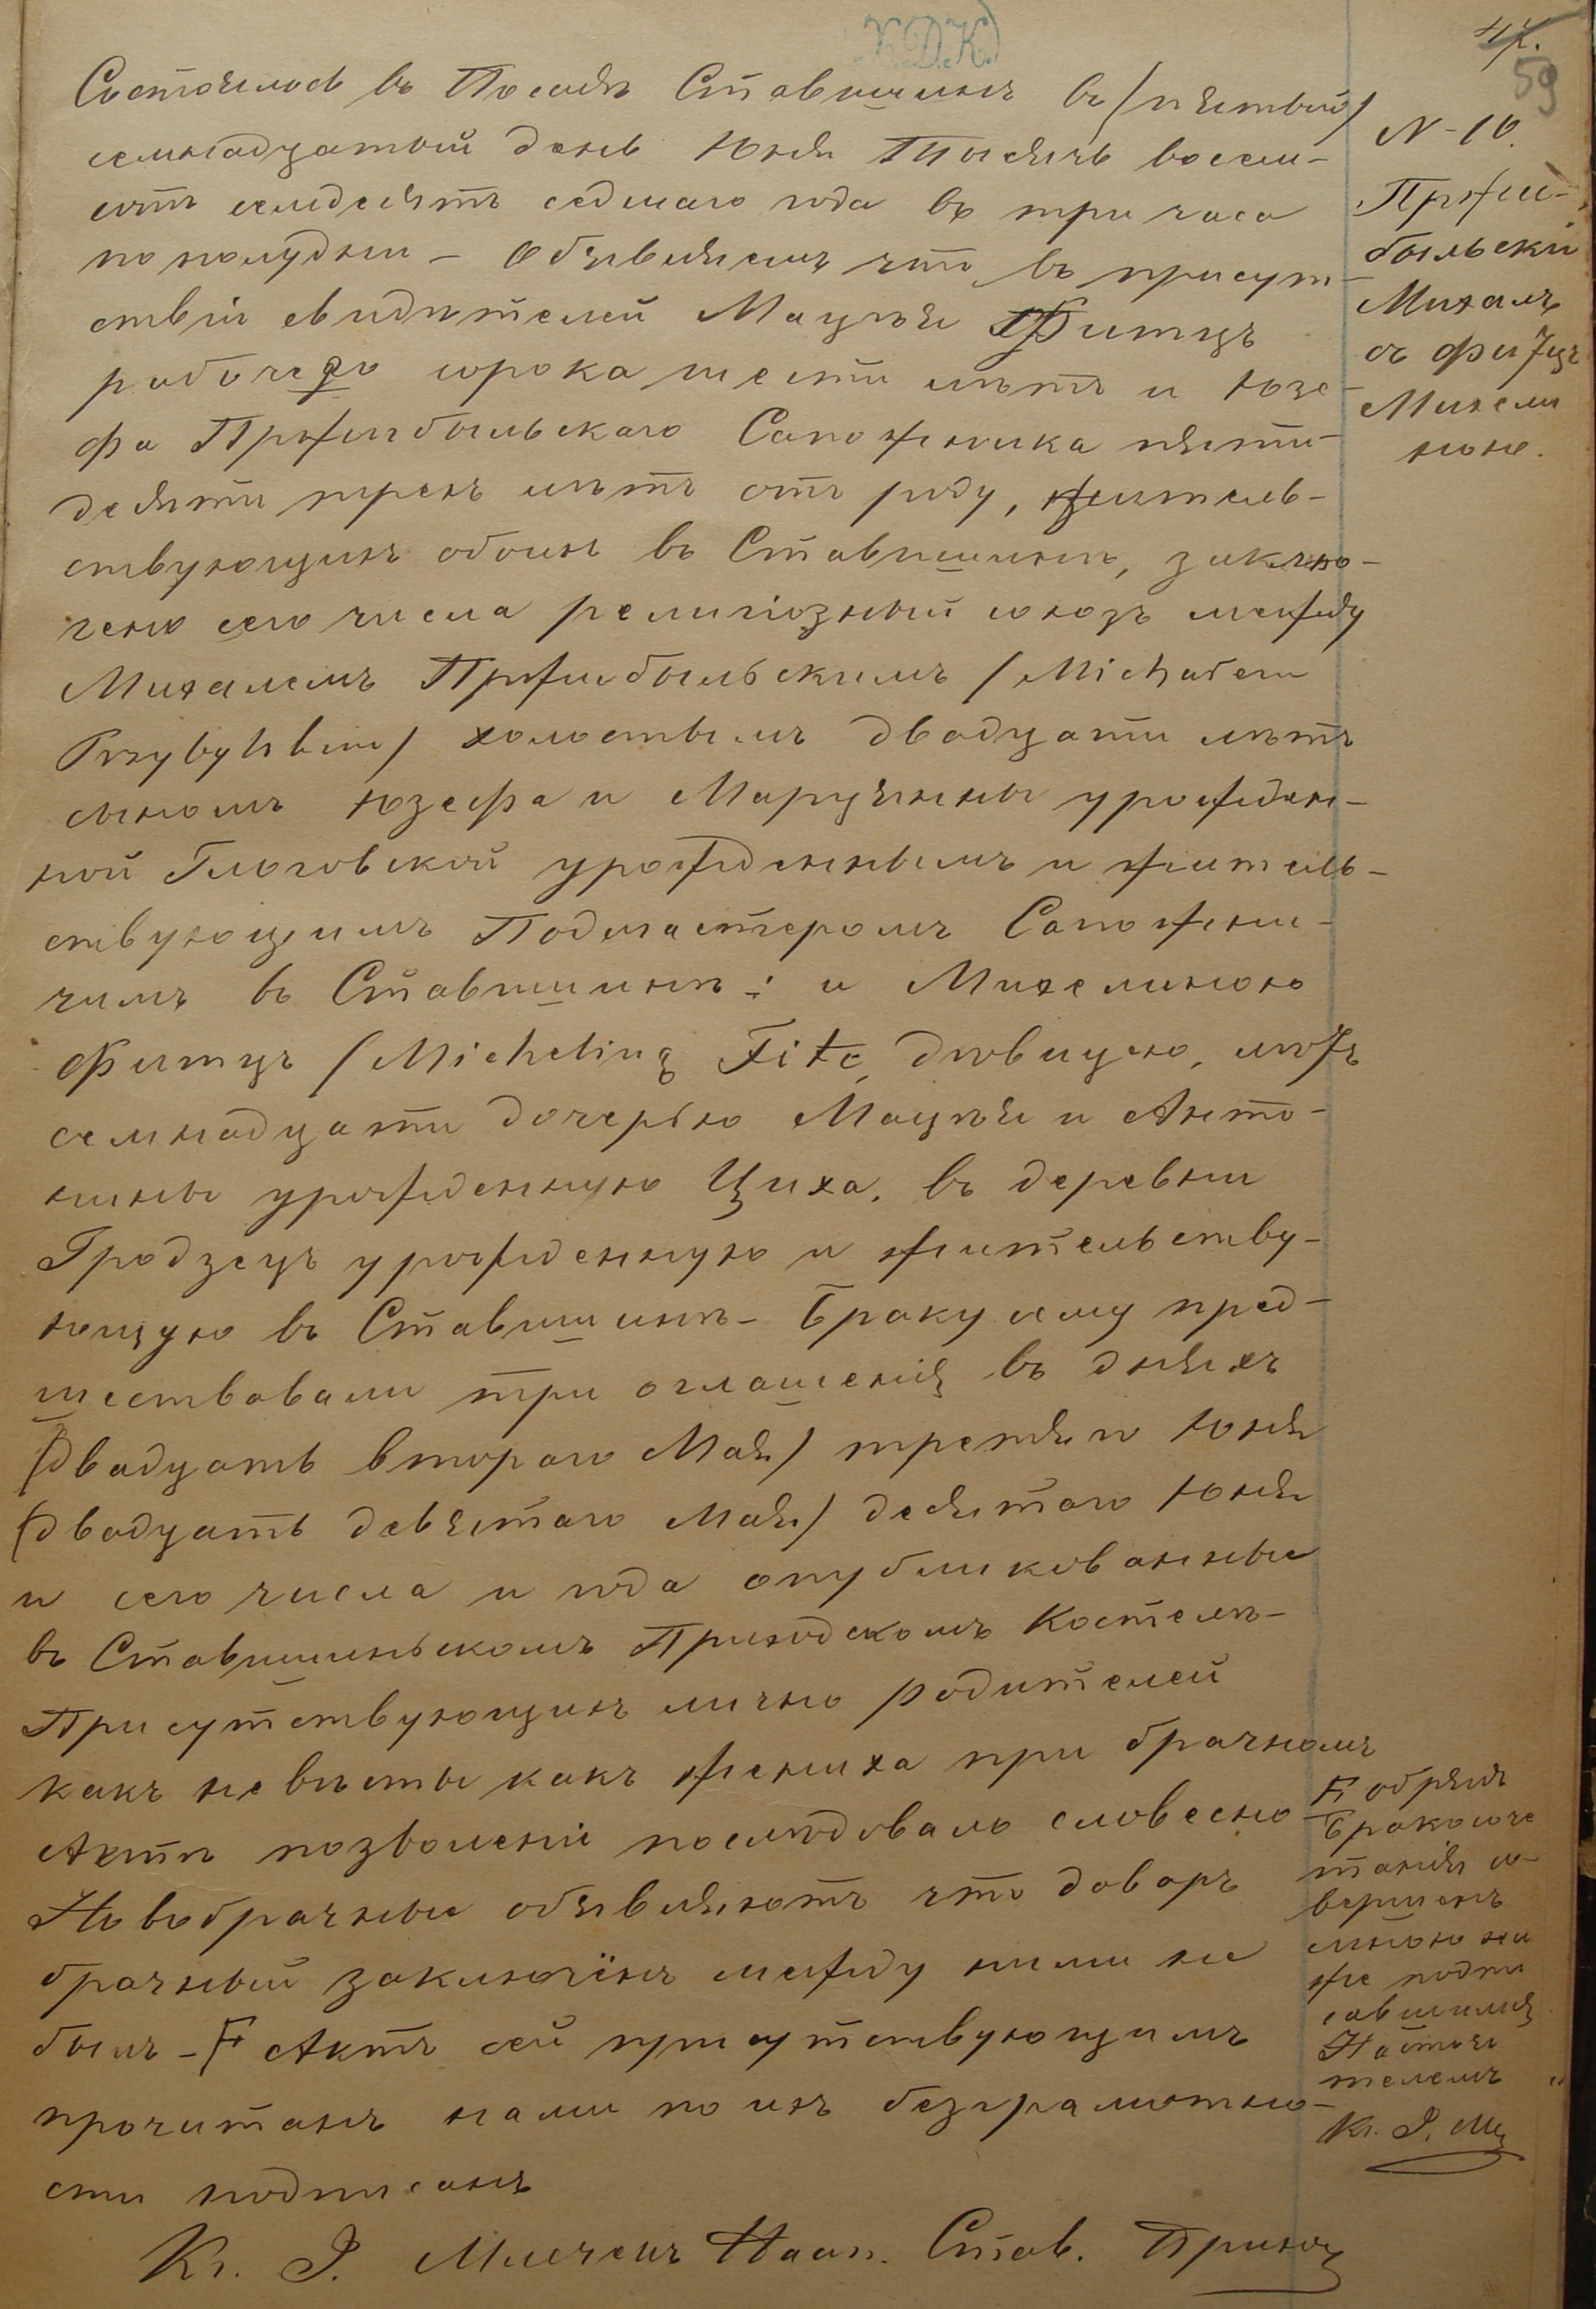 К.Д.К.
59
Состоялось въ Посадѣ Ставишинѣ въ /пятый/
семнадцатый день Юня Тысячъ восем-
сотъ семдесятъ седмаго года въ три часа
по полудни – Объявляемъ что въ присут-
ствіи свидѣтелей Мацѣя Фитцъ
рабочего сорока шести лѣтъ и Юзе-
фа Пржибыльскаго Сапожника пяти-
десяти трехъ лѣтъ отъ роду, житель-
ствующихъ обоихъ въ Ставишинѣ, заклю-
чено сего числа религіозный союзъ между
Михалемъ Пржибыльскимъ /Michałem
Przybylskim/ холостымъ двадцати лѣтъ
сыномъ Юзефа и Марцянны урожден-
ной Глоговской урожденнымъ и житель-
ствующимъ Подмастеромъ Сапожни-
чимъ въ Ставишинѣ; и Михелиною
Фитцъ /Micheliną Fitc, дѣвицею, лѣтъ
семнадцати дочерью Мацѣя и Анто-
нины урожденную Циха, въ деревни
Гродзецъ урожденную и жительству-
ющую въ Ставишинѣ – Браку сему пред-
шествовали три оглашенія въ дняхъ
(двадцать второго Мая) третяго Юня
(двадцать девятаго Мая) десятаго Юня
и сего числа и года опубликованные
въ Ставишиньскомъ Приходскомъ Костелѣ–
Присутствующихъ лично родителей
какъ невѣсты какъ жениха при брачномъ
Актѣ позволеніе послѣдовало словесно –
Новобрачные объявляютъ что доворъ
брачный заключёнъ между ними не
былъ – F Актъ сей присутствующимъ
прочитанъ нами по ихъ безграмотно-
сти подписанъ
Кс. I. Наст. Став. Приход
N – 10.
Пржи-
быльскій
Михалъ
съ Фитцъ
Михели
ною.
F, обрядъ
Бракосоче
танія со-
вершенъ
мною ни
же подпи
савшимся
Настоя
телемъ
Кс. I. Ми